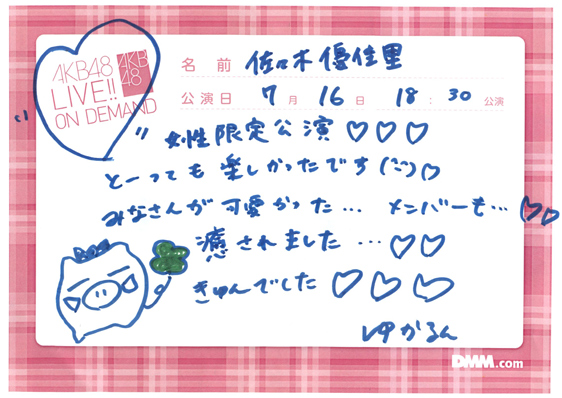 AKB48
LIVE!!
ON DEMAND
AKB
48
名前 佐々木優佳里
公演日 7月16日 18:30公演
女性限定公演♡♡♡
とーっても楽しかったです(¨̮)♡
みなさんが可愛かった… メンバーも…♡♡
癒されました…♡♡
きゅんでした♡♡♡
ゆかるん
DMM.com